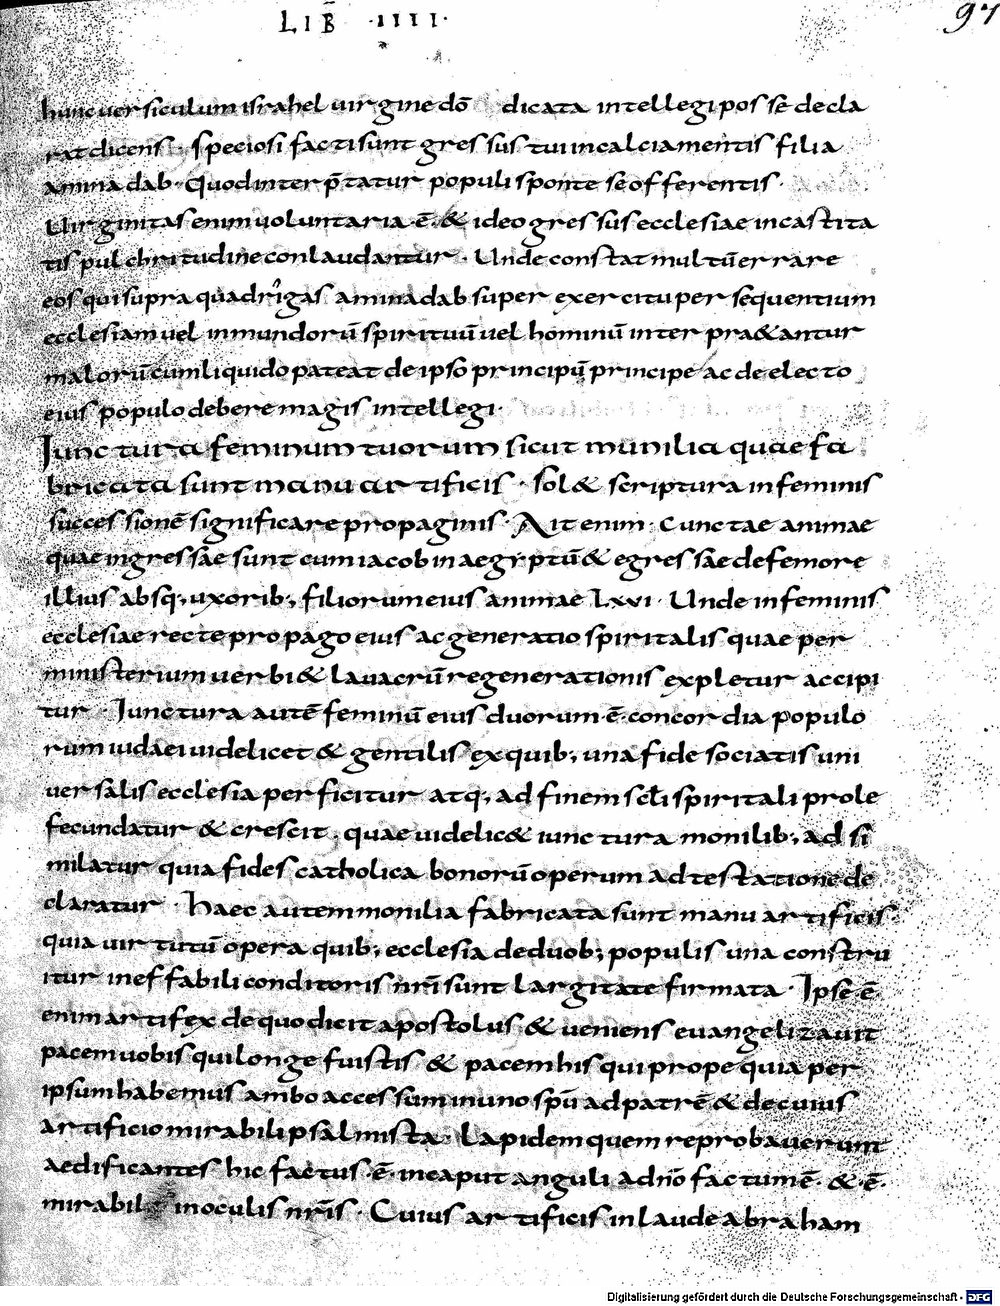 LIB̅ ·IIII·
97
hunc versiculum israhel virgine dō dicata intellegi posse decla
rat dicens · speciosi facti sunt gressus tui in calciamentis filia
aminadab · Quod interp̄tatur populi sponte se offerentis ·
Virginitas enim voluntaria ē · & ideo gressus ecclesiae in castita
tis pulchritudine conlaudantur · Unde constat multū errare
eos qui supra quadrigas aminadab super exercitu persequentium
ecclesiam vel inmundorū spirituū vel hominū interpraetantur
malorū cum liquido pateat de ipso principū principe ac de electo
eius populo debere magis intellegi ·
Iunctura feminum tuorum sicut munilia quae fa
bricata sunt manu artificis · Sol& scriptura in feminis
successionē significare propaginis · Ait enim · Cunctae animae
quae ingressae sunt cum iacob in aegyptū & egressae de femore
illius absq; uxorib; filiorum eius animae Lxvi · Unde in feminis
ecclesiae recte propago eius ac generatio spiritalis quae per
ministerium verbi & lavacrū regenerationis expletur accipi
tur · Iunctura autē feminū eius duorum ē · concordia populo
rum iudaei videlicet & gentilis ex quib; una fide sociatis uni
versalis ecclesia perficitur atq; ad finem scl̄i spiritali prole
fecundatur & crescit · quae videlic& iunctura monilib; adsi
milatur quia fides catholica bonorū operum adtestatione de
claratur · Haec autem monilia fabricata sunt manu artificis ·
quia virtutū opera quib; ecclesia de duob; populis una constru
itur ineffabili conditoris nr̄i sunt largitate firmata · Ipse ē
enim artifex de quo dicit apostolus & veniens evangelizavit
pacem vobis qui longe fuistis & pacem his qui prope quia per
ipsum habemus ambo accessum in uno spū ad patrē & de cuius
artificio mirabili psalmista · Lapidem quem reprobaverunt
aedificantes hic factus ē · in caput anguli a dn̄o factum ē · & ē ·
mirabil in oculis nr̄is · Cuius artificis in laude abraham
Digitalisierung gefördert durch die Deutsche Forschungsgemeinschaft - DFG